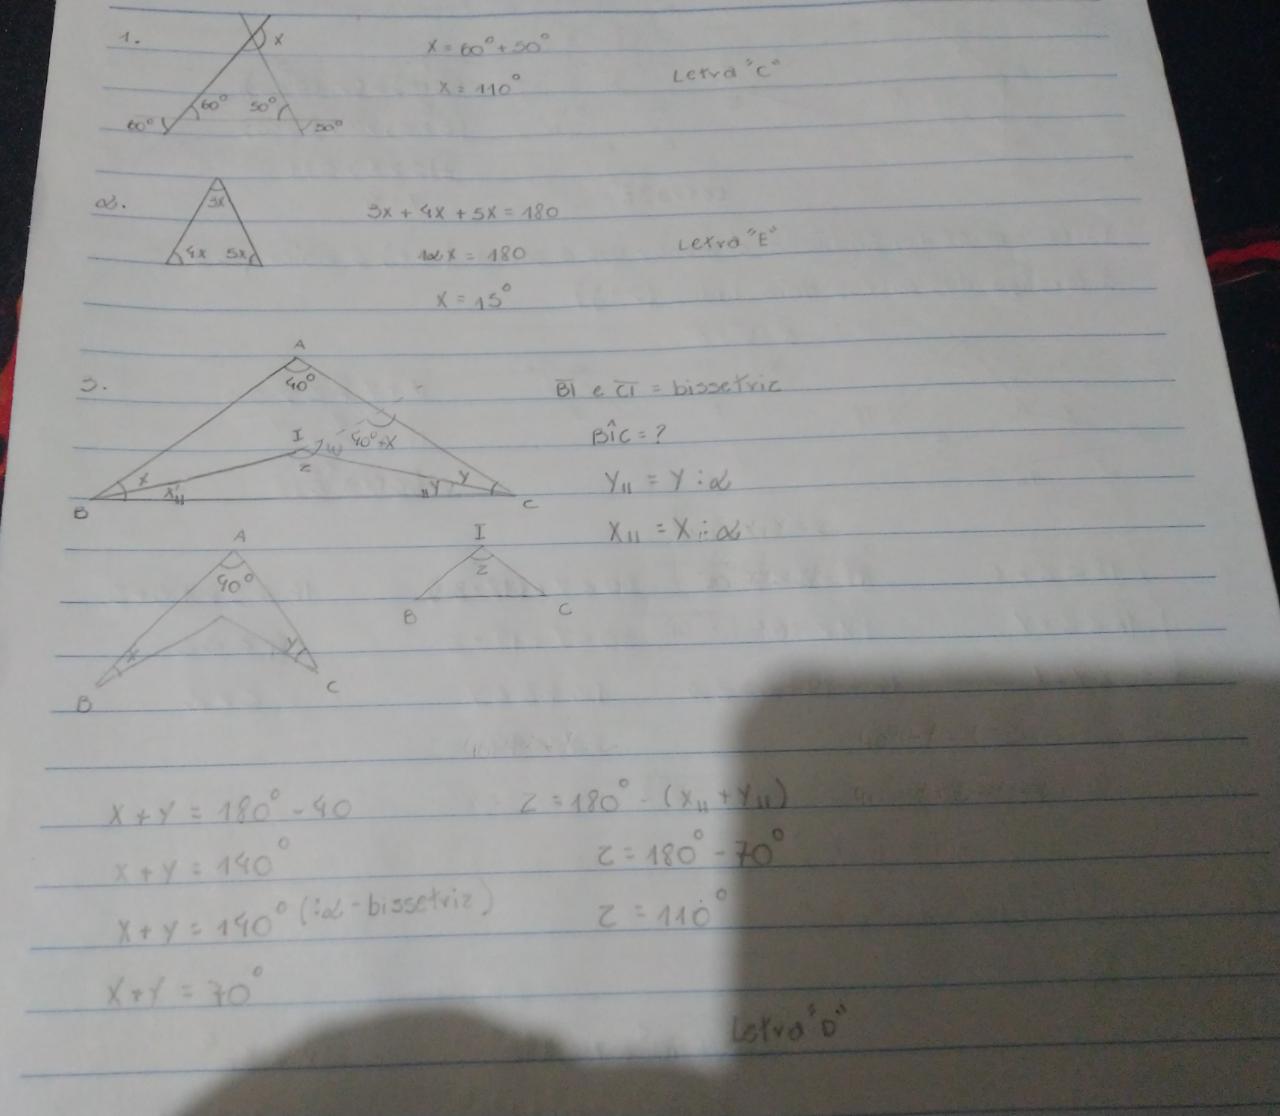 1.
x
x = 60° + 50°
x = 110°
Letra "C"
60° 60° 50° 50°
2.
3x
4x 5x
3x + 4x + 5x = 180
12x = 180
x = 15°
Letra "E"
3.
A
40°
I
w 40°+x
z
x
x"
"y
y
B
C
BI e CI = bissetriz
BÎC = ?
y" = y : 2
x" = x ÷ 2
A
40°
x
y
B
C
I
z
B
C
x + y = 180° - 40
x + y = 140°
x + y = 140° (:2 - bissetriz)
x + y = 70°
z = 180° - (x" + y")
z = 180° - 70°
z = 110°
Letra "D"